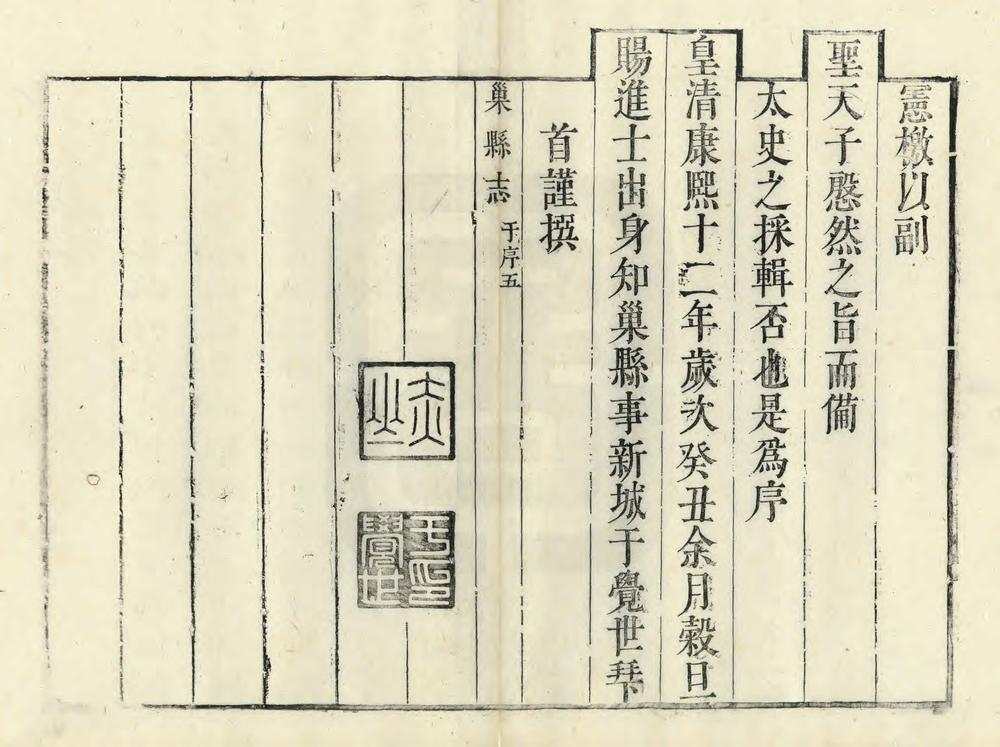 憲檄以副
聖天子慇然之旨而備
太史之採輯否也是爲序
皇清康熙十二年歲次癸丑余月穀旦
賜進士出身知巢縣事新城于覺世拜
首謹撰
巢縣志 于序五
于印覺世